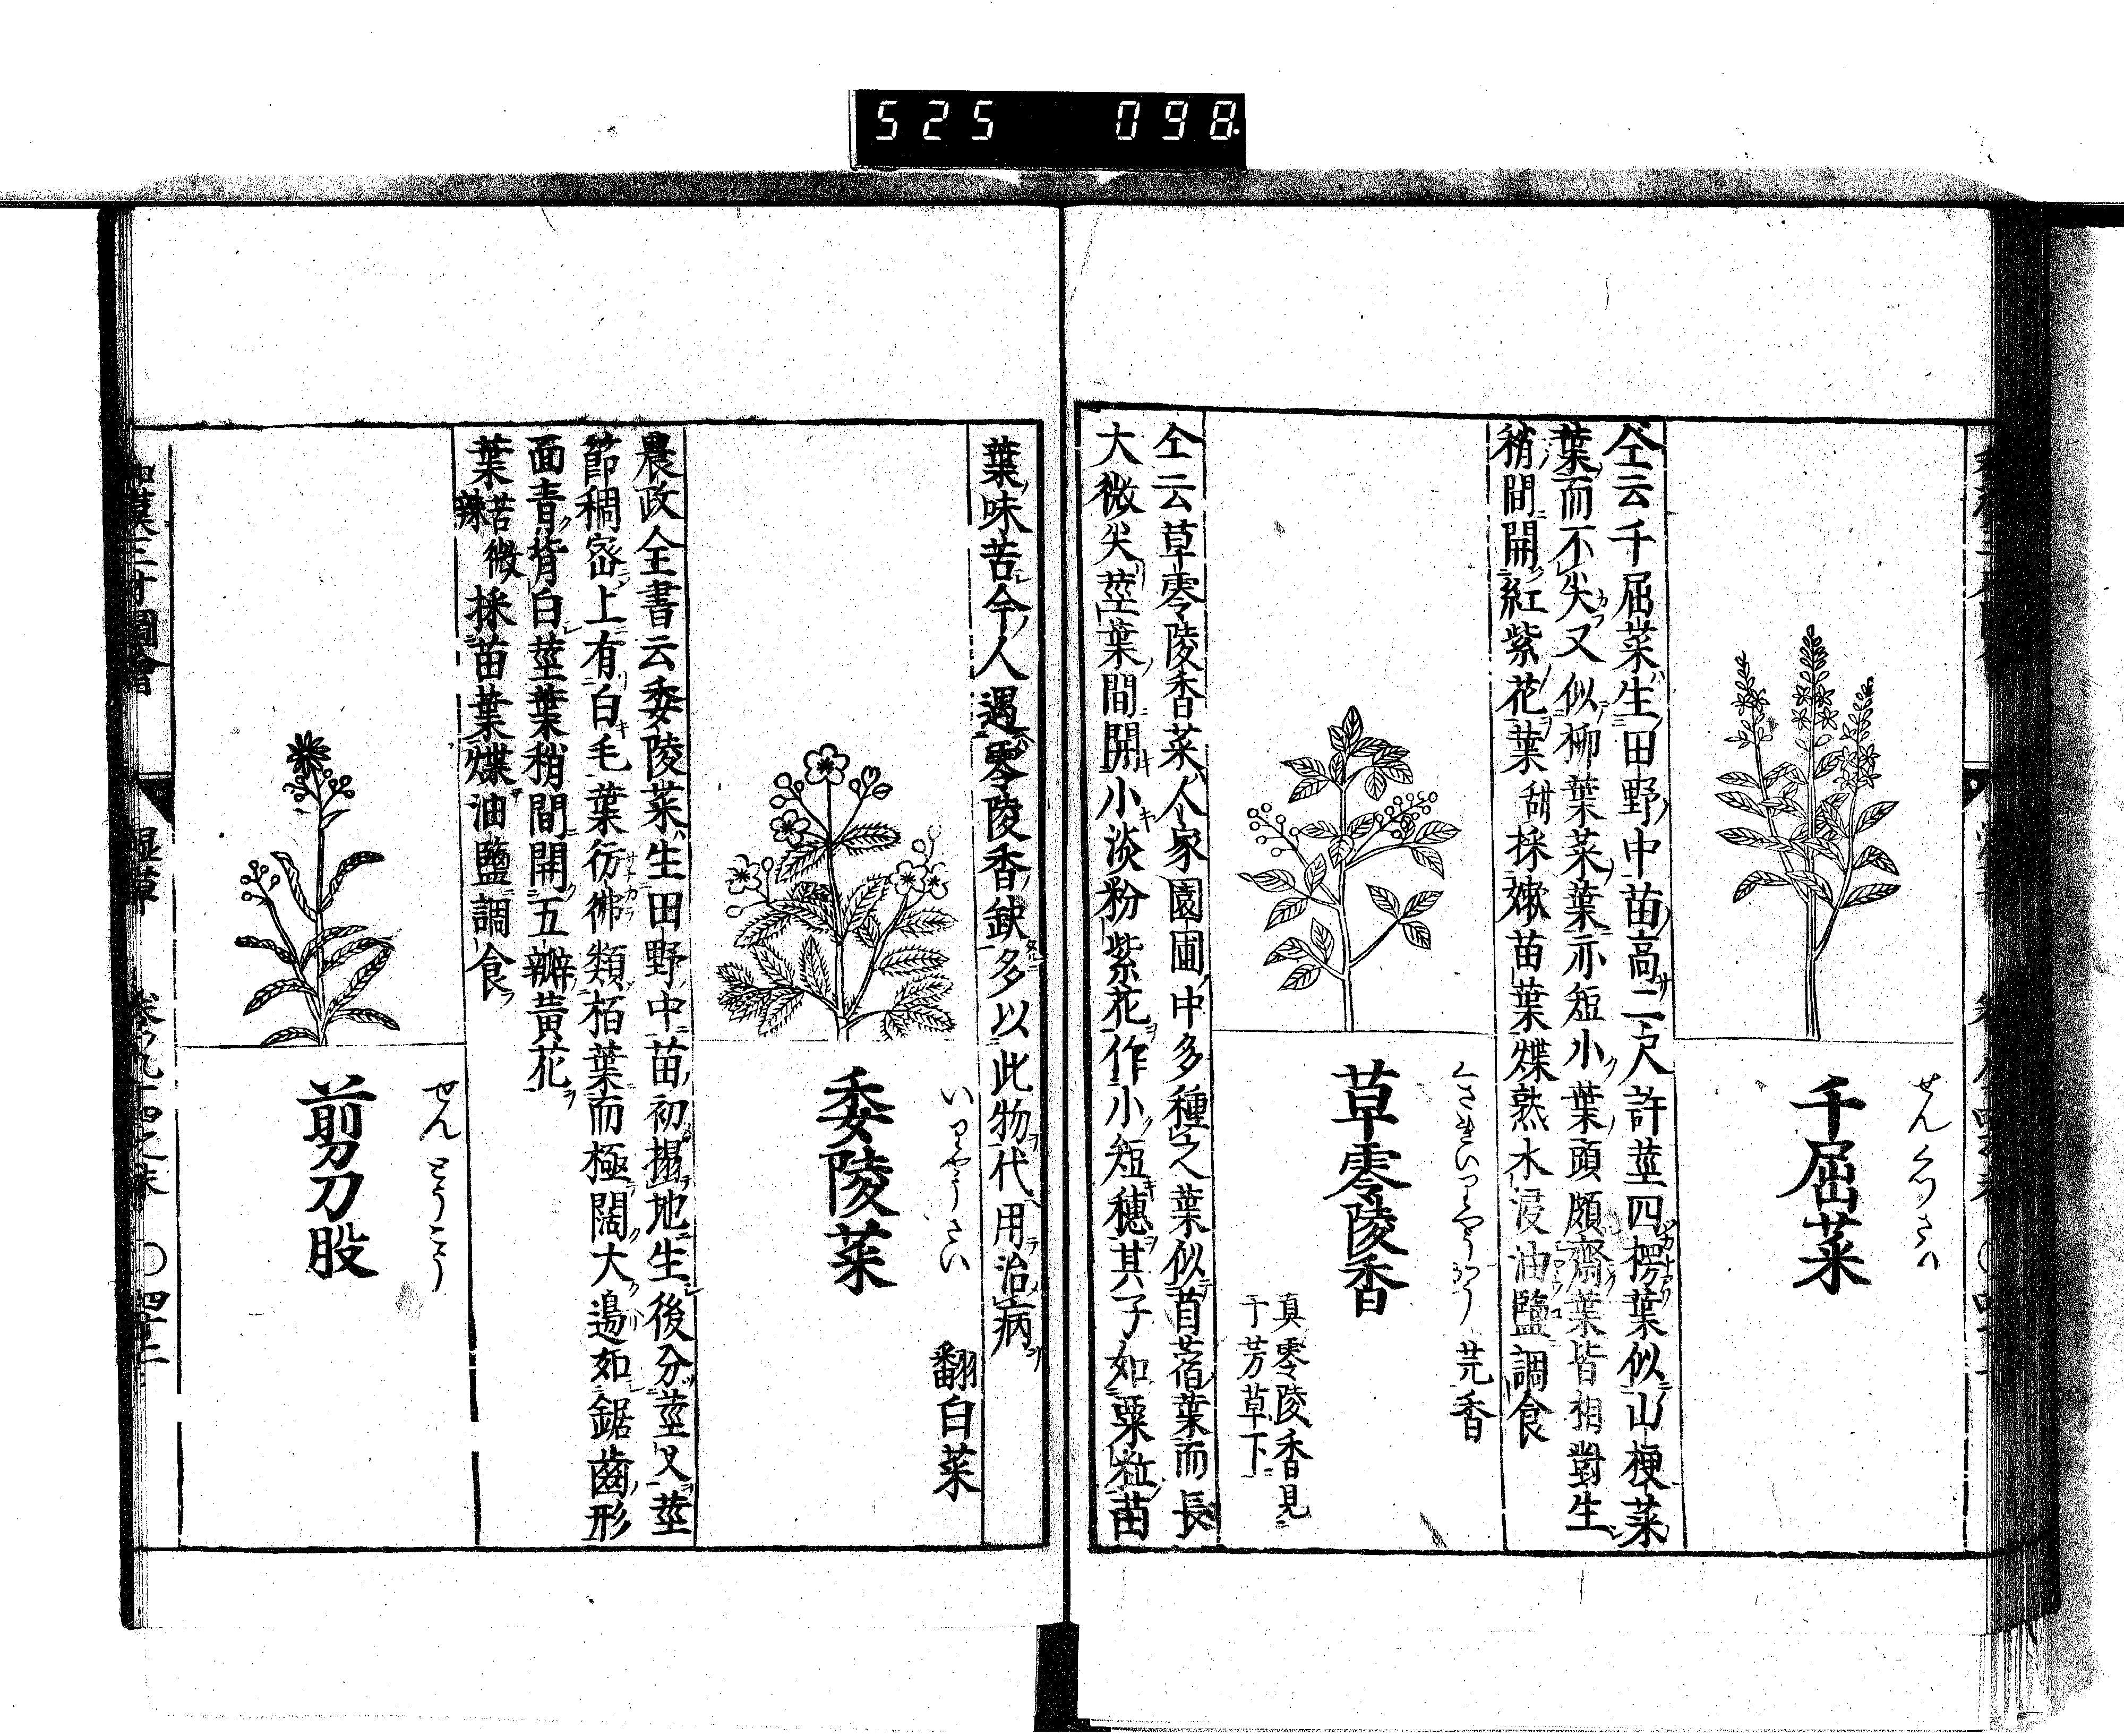 525 098
せんくつさい
千屈菜
仝云千屈菜生田野中苗高二尺許莖四楞葉似山梗菜
葉而不尖又似柳葉菜葉亦短小葉頭頗齊葉皆相對生
稍間開紅紫花葉甜採嫩苗葉煠熟水浸油鹽調食
くされいりやうかう 芫香
草零陵香
真零陵香見
于芳草下
仝云草零陵香菜人家園圃中多種之葉似苜蓿葉而長
大微尖莖葉間開小淡粉紫花作小短穗其子如粟粒苗
葉味苦今人遇零陵香缺多以此物代用治病
いりやうさい
翻白菜
委陵菜
農政全書云委陵菜生田野中苗初搨地生後分莖叉莖
節稠宻上有白毛葉彷彿類栢葉而極闊大邉如鋸齒形
面青背白莖葉稍間開五瓣黃花
葉苦微辣採苗葉煠油鹽調食
せんとうこう
剪刀股
和漢三才圖會 濕草 卷九十四之末 〇 四十二